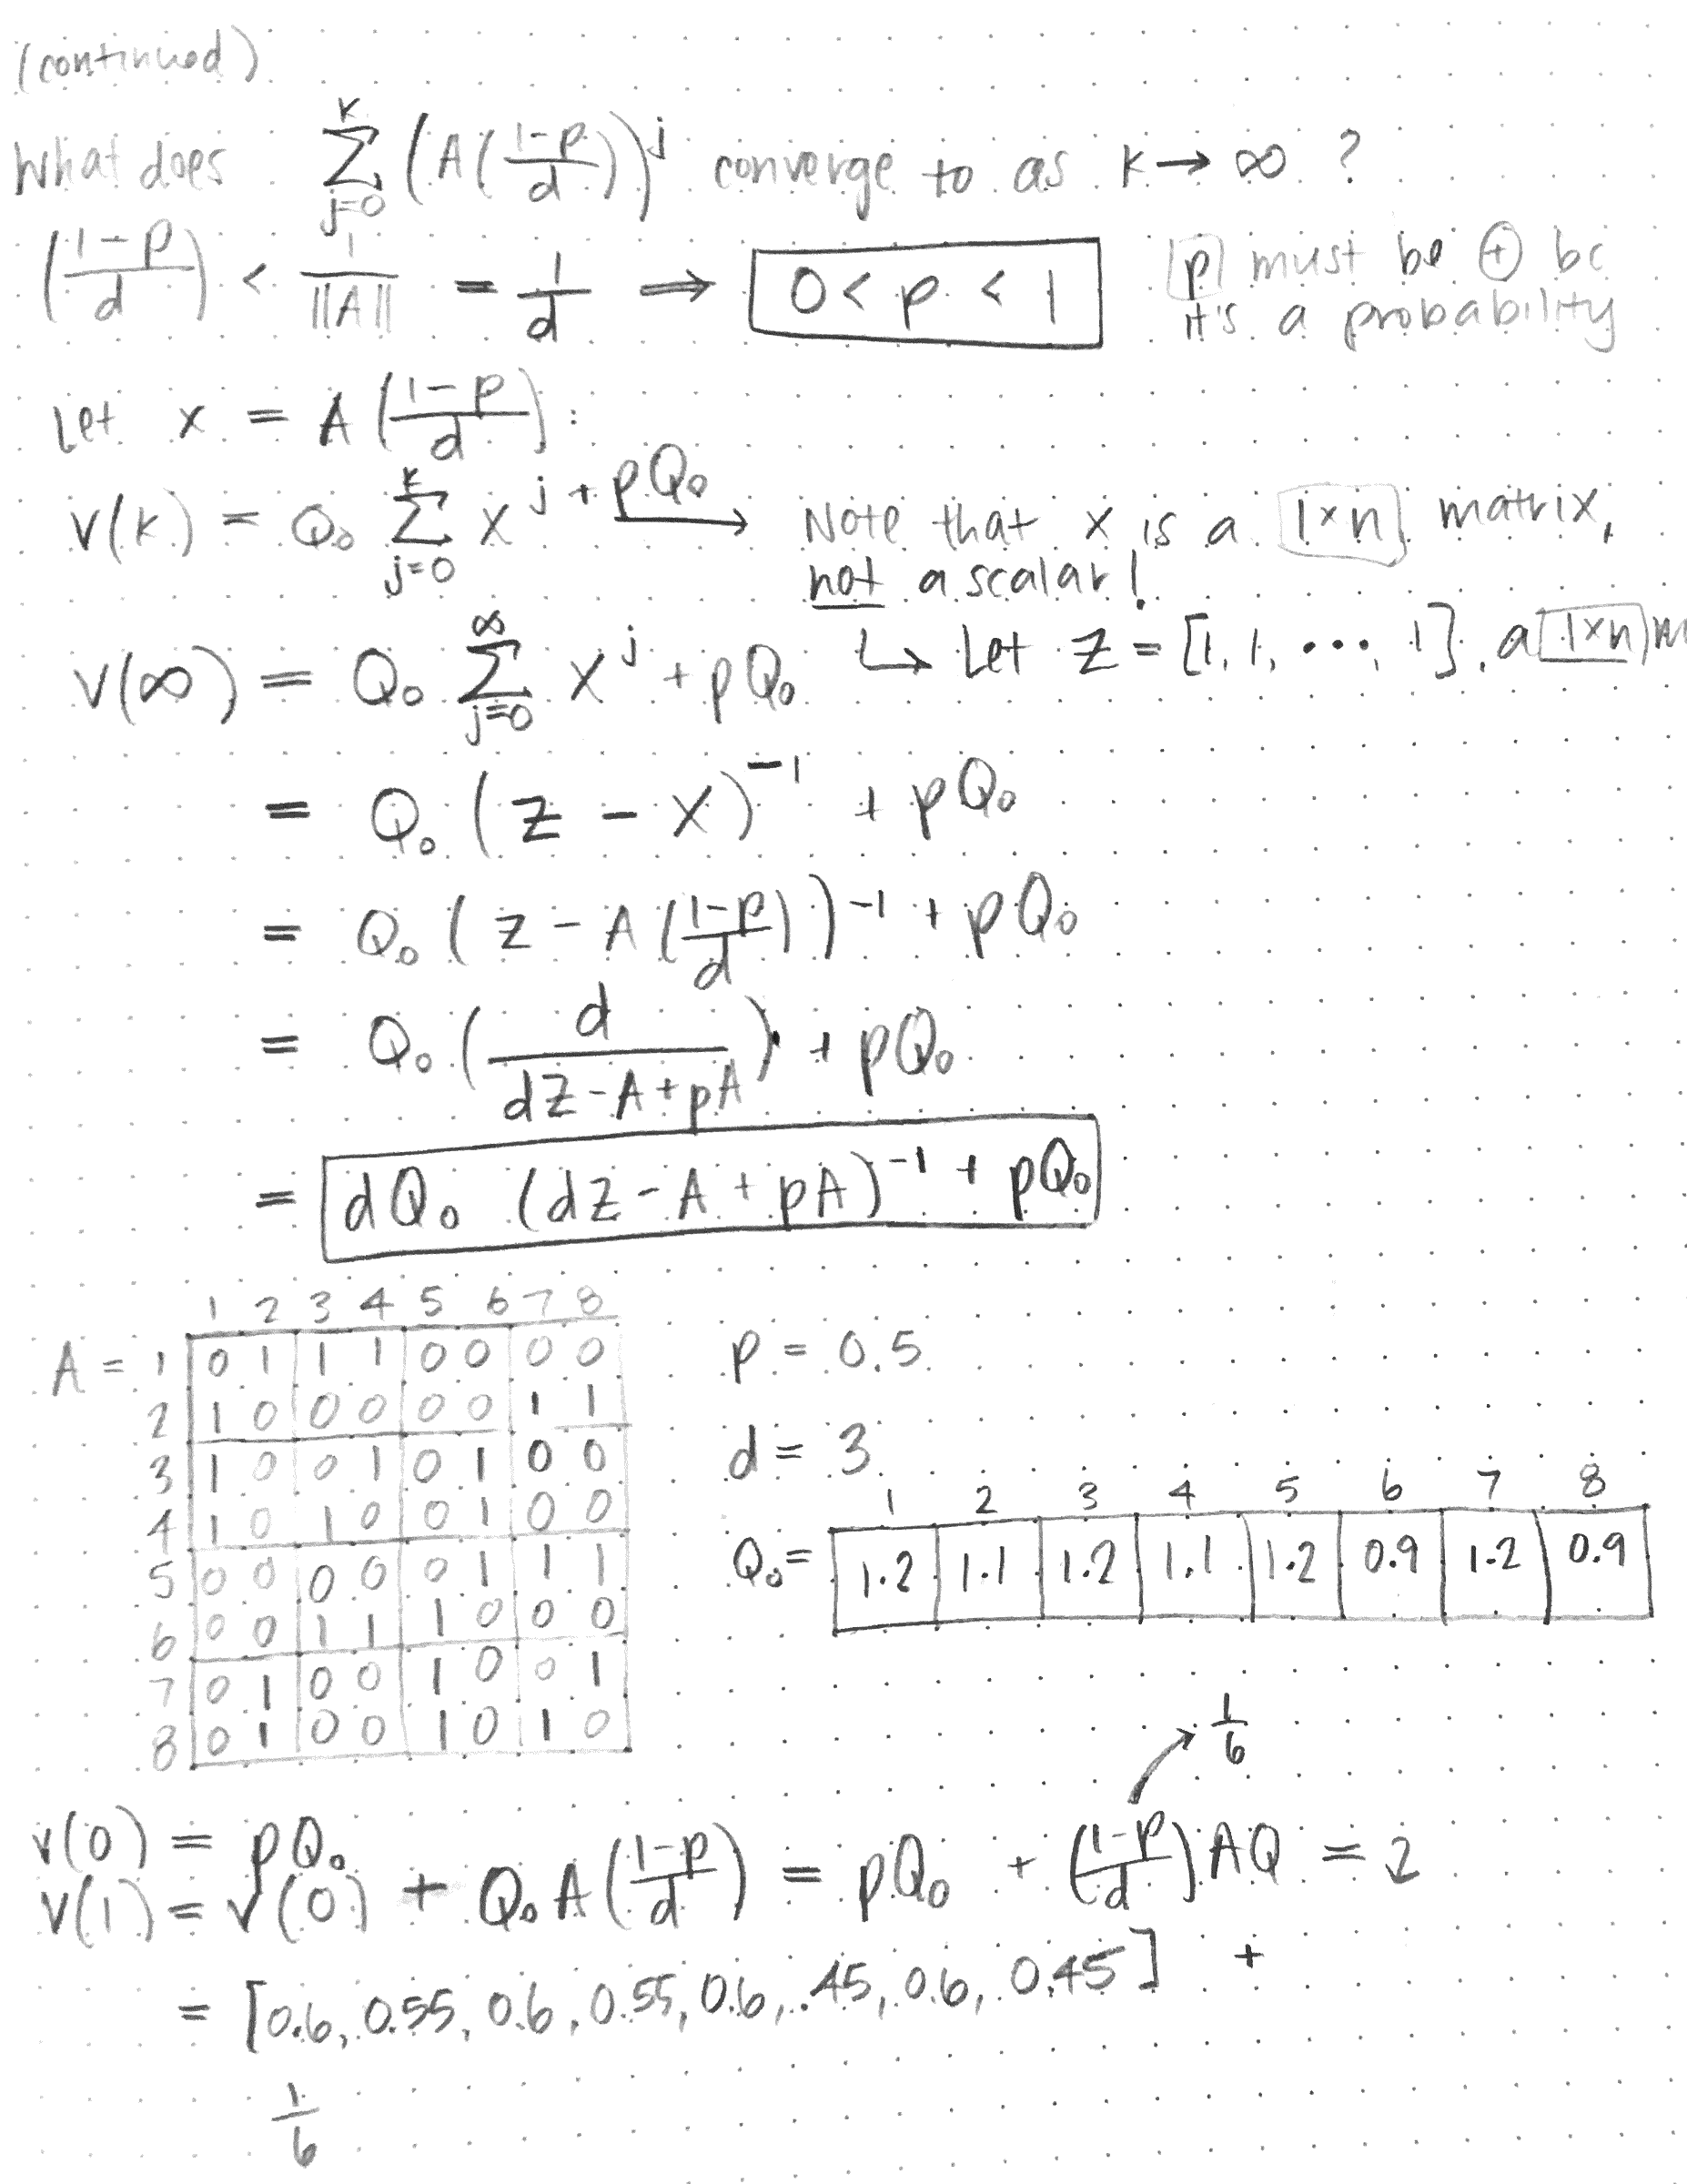 (continued)
What does \sum_{j=0}^{k} (A(\frac{1-p}{d}))^j converge to as k → ∞ ?
(\frac{1-p}{d}) < \frac{1}{||A||} = \frac{1}{d} ⟹ 0 < p < 1
p must be ⊕ bc
it's a probability
Let x = A(\frac{1-p}{d}):
v(k) = Q₀ \sum_{j=0}^{k} x^j + pQ₀ → Note that x is a 1×n matrix,
not a scalar!
↳ Let Z = [1, 1, ..., 1], a 1×n m
v(∞) = Q₀ \sum_{j=0}^{∞} x^j + pQ₀
= Q₀ (Z - X)^{-1} + pQ₀
= Q₀ (Z - A(\frac{1-p}{d}))^{-1} + pQ₀
= Q₀ (\frac{d}{dZ - A + pA}) + pQ₀
= dQ₀ (dZ - A + pA)^{-1} + pQ₀
1 2 3 4 5 6 7 8
A = 1 0 1 1 1 0 0 0 0
2 1 0 0 0 0 0 1 1
3 1 0 0 1 0 1 0 0
4 1 0 1 0 0 1 0 0
5 0 0 0 0 0 1 1 1
6 0 0 1 1 1 0 0 0
7 0 1 0 0 1 0 0 1
8 0 1 0 0 1 0 1 0
p = 0.5
d = 3
1 2 3 4 5 6 7 8
Q₀ = 1.2 1.1 1.2 1.1 1.2 0.9 1.2 0.9
\frac{1}{6}
v(0) = pQ₀
v(1) = v(0) + Q₀A(\frac{1-p}{d}) = pQ₀ + (\frac{1-p}{d})AQ = 2
= [0.6, 0.55, 0.6, 0.55, 0.6, .45, 0.6, 0.45] +
\frac{1}{6}